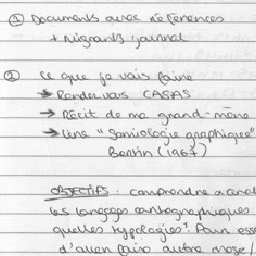 ① Documents avec références
+ migrants journal
② Ce que je vais faire
→ Rendez vous CASAS
→ Récit de ma grand-mère
→ Une "Sémiologie graphique"
Bertin (1967)
OBJECTIFS : comprendre
les langages cartographiques
quelles typologies ? Pour
d'aller faire autre